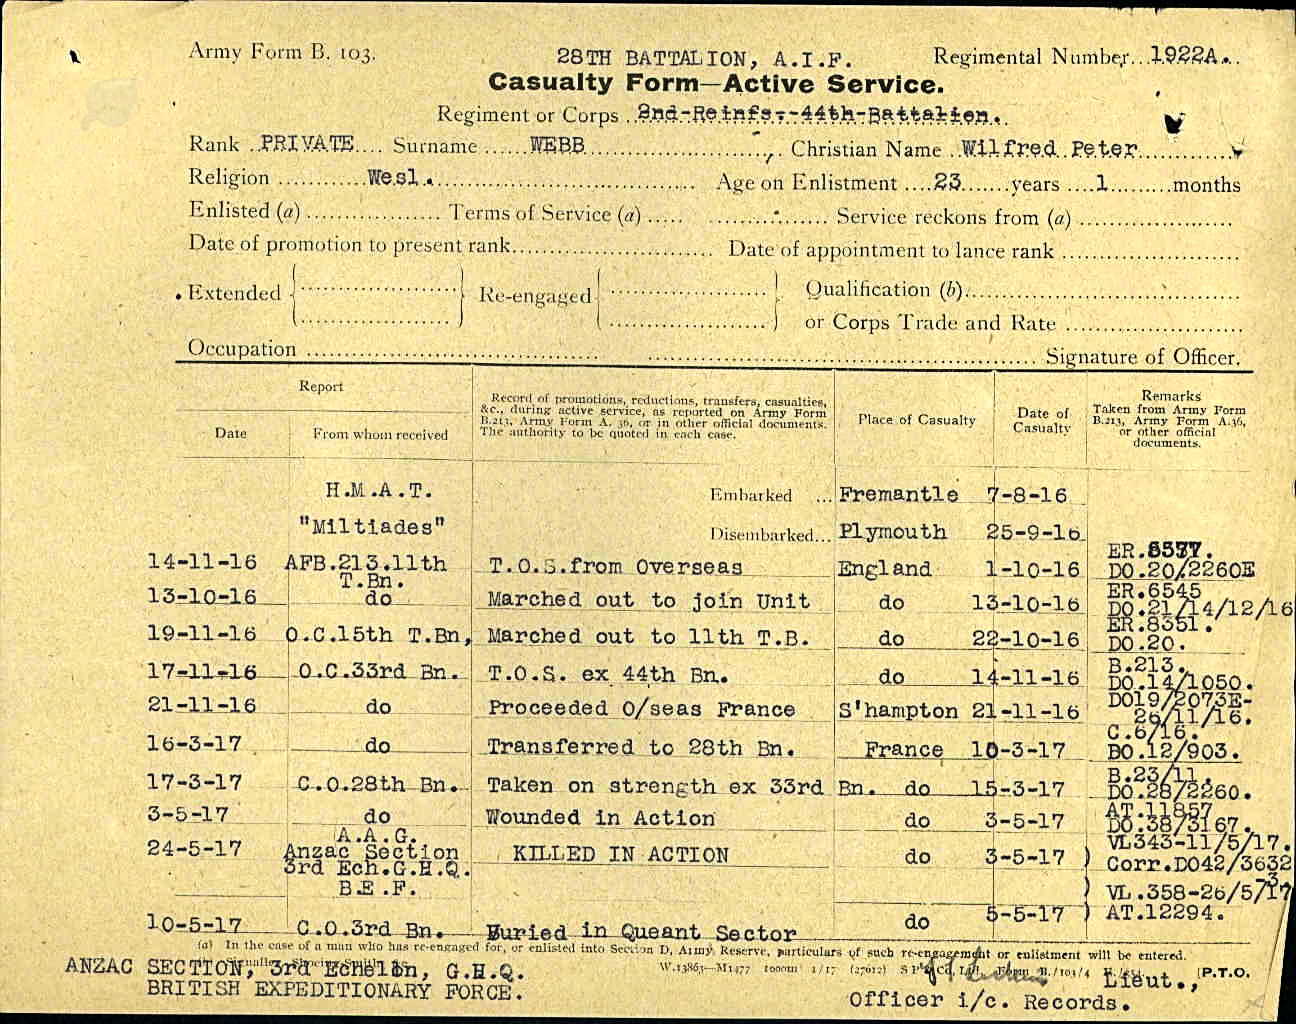 Army Form B. 103.
28TH BATTALION, A.I.F.
Regimental Number...1922A...
Casualty Form—Active Service.
Regiment or Corps ..2nd-Reinfs.--44th-Battalion...
Rank ..PRIVATE.... Surname ......WEBB........................, Christian Name ..Wilfred Peter..............
Religion ............Wesl................................... Age on Enlistment ....23.......years ....1.........months
Enlisted (a) .................. Terms of Service (a) ..... ............... Service reckons from (a) .....................
Date of promotion to present rank........................... Date of appointment to lance rank .......................
Extended Re-engaged Qualification (b)....................................
or Corps Trade and Rate .......................
Occupation ....................................... .................................................... Signature of Officer.
Report
Date
From whom received
Record of promotions, reductions, transfers, casualties, &c., during active service, as reported on Army Form B.213, Army Form A. 36, or in other official documents. The authority to be quoted in each case.
Place of Casualty
Date of Casualty
Remarks
Taken from Army Form B.213, Army Form A.36, or other official documents.
H.M.A.T. Embarked ... Fremantle 7-8-16
"Miltiades" Disembarked... Plymouth 25-9-16
14-11-16 AFB.213.11th T.Bn. T.O.S.from Overseas England 1-10-16 ER. DO.20/2260E
13-10-16 do Marched out to join Unit do 13-10-16 ER.6545 DO.21/14/12/16
19-11-16 O.C.15th T.Bn, Marched out to 11th T.B. do 22-10-16 ER.8351. DO.20.
17-11-16 O.C.33rd Bn. T.O.S. ex 44th Bn. do 14-11-16 B.213. DO.14/1050.
21-11-16 do Proceeded O/seas France S'hampton 21-11-16 DO19/2073E-26/11/16.
16-3-17 do Transferred to 28th Bn. France 10-3-17 C.6/16. DO.12/903.
17-3-17 C.O.28th Bn. Taken on strength ex 33rd Bn. do 15-3-17 B.23/11. DO.28/2260.
3-5-17 do Wounded in Action do 3-5-17 AT.11857 DO.38/3167.
24-5-17 A.A.G. Anzac Section 3rd Ech.G.H.Q. B.E.F. KILLED IN ACTION do 3-5-17 ) VL343-11/5/17. Corr.DO42/3632 ) VL.358-26/5/17
10-5-17 C.O.3rd Bn. Buried in Queant Sector do 5-5-17 ) AT.12294.
(a) In the case of a man who has re-engaged for, or enlisted into Section D, Army Reserve, particulars of such re-engagement or enlistment will be entered.
W.13863—M1477 1000m 1/17 (27612) [P.T.O.
ANZAC SECTION, 3rd Echelon, G.H.Q.
BRITISH EXPEDITIONARY FORCE.
Lieut.,
Officer i/c. Records.